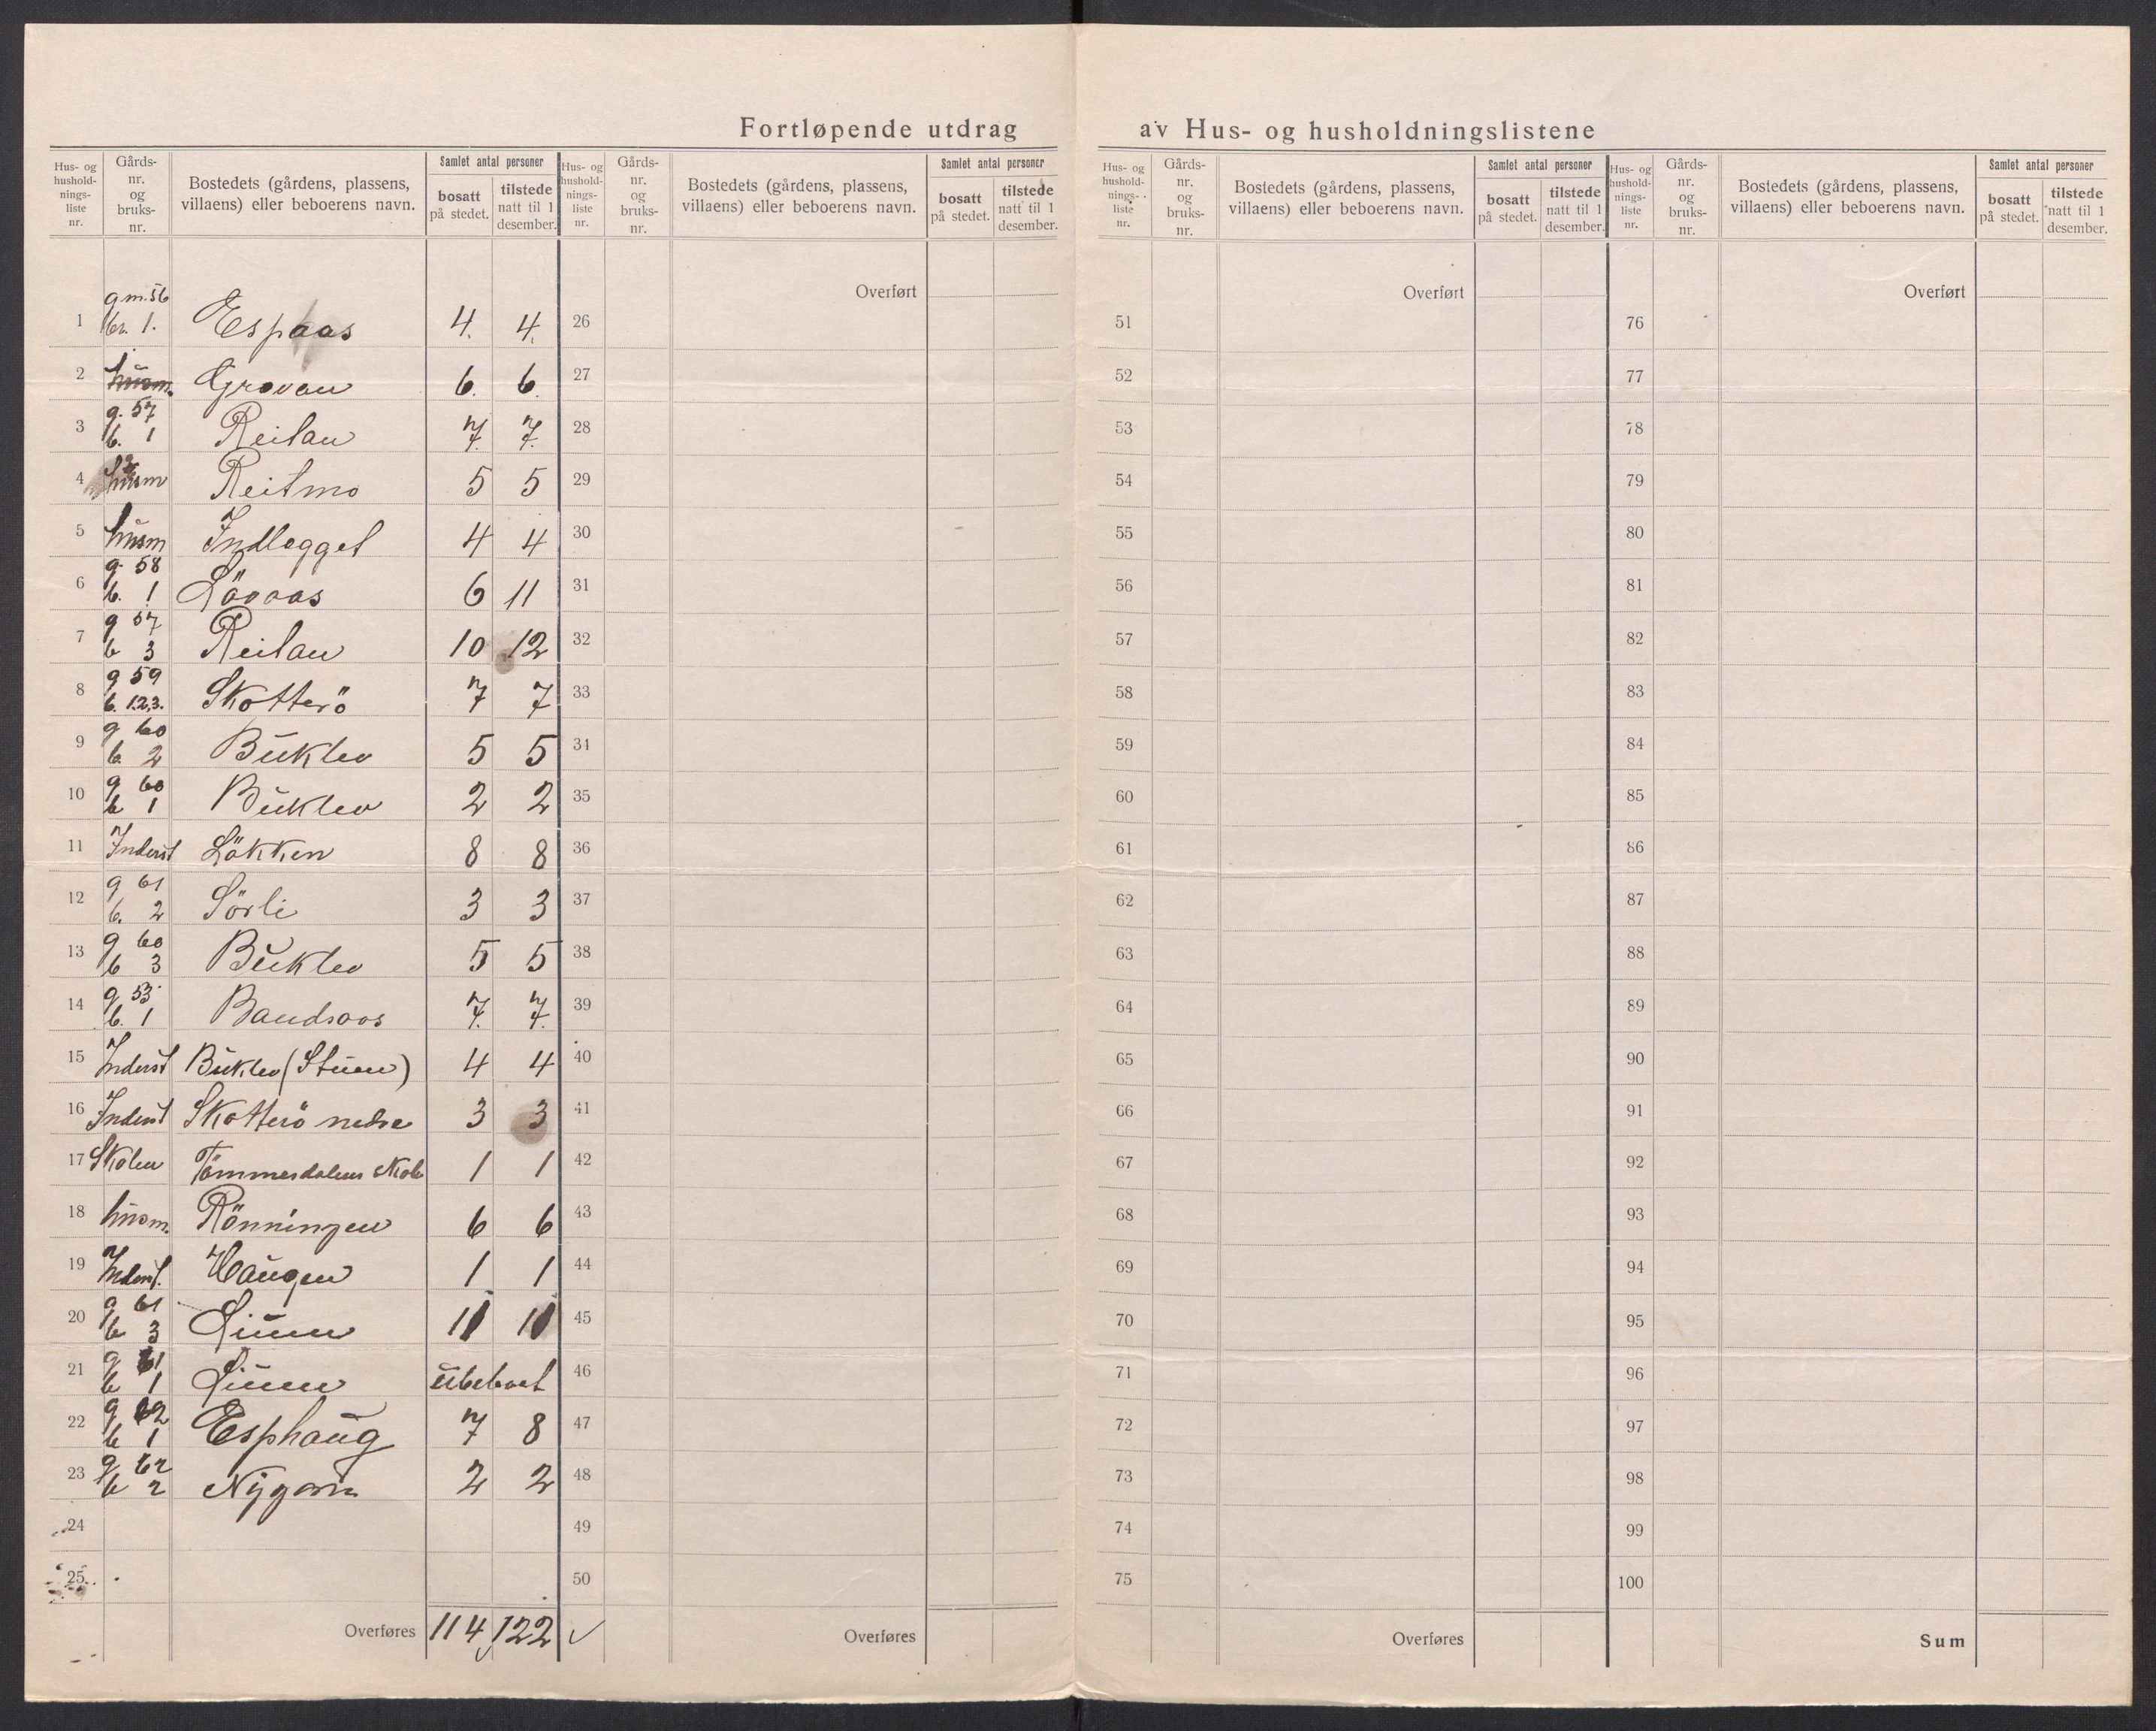 Fortløpende utdrag av Hus- og husholdningslistene
Hus- og husholdnings- liste nr. | Gårds- nr. og bruks- nr. | Bostedets (gårdens, plassens, villaens) eller beboerens navn. | Samlet antal personer | bosatt på stedet. | tilstede natt til 1 desember.
Hus- og husholdnings- liste nr. | Gårds- nr. og bruks- nr. | Bostedets (gårdens, plassens, villaens) eller beboerens navn. | Samlet antal personer | bosatt på stedet. | tilstede natt til 1 desember.
Hus- og husholdnings- liste nr. | Gårds- nr. og bruks- nr. | Bostedets (gårdens, plassens, villaens) eller beboerens navn. | Samlet antal personer | bosatt på stedet. | tilstede natt til 1 desember.
Hus- og husholdnings- liste nr. | Gårds- nr. og bruks- nr. | Bostedets (gårdens, plassens, villaens) eller beboerens navn. | Samlet antal personer | bosatt på stedet. | tilstede natt til 1 desember.
Overført Overført Overført
1 g.nr. 56 br. 1. Espaas 4. 4. 26 51 76
2 husm. Grovan 6. 6. 27 52 77
3 g. 57 b. 1 Reitan 7. 7. 28 53 78
4 husm Reitmo 5 5 29 54 79
5 husm Indlægget 4 4 30 55 80
6 g. 58 b. 1 Lövaas 6 11 31 56 81
7 g 57 b 3 Reitan 10 12 32 57 82
8 g 59 b. 1.2.3. Skotterö 7 7 33 58 83
9 g 60 b 2 Buklev 5 5 34 59 84
10 g 60 b 1 Buklev 2 2 35 60 85
11 Inderst Lökken 8 8 36 61 86
12 g 61 b. 2 Sörli 3 3 37 62 87
13 g 60 b 3 Buklev 5 5 38 63 88
14 g. 53 b. 1 Baudsaas 7. 7. 39 64 89
15 Inderst Buklev (Stuen) 4 4 40 65 90
16 Inderst Skotterö nedre 3 3 41 66 91
17 Skolen Tömmesdalens skole 1 1 42 67 92
18 husm. Rönningen 6 6 43 68 93
19 Inderst. Haugen 1 1 44 69 94
20 g 61 b 3 Liuen 11 11 45 70 95
21 g 61 b 1 Liuen ubeboet 46 71 96
22 g 62 b 1 Esphaug 7 8 47 72 97
23 g 62 b 2 2 2 48 73 98
24 49 74 99
25 50 75 100
Overføres 114 122 Overføres Overføres Sum